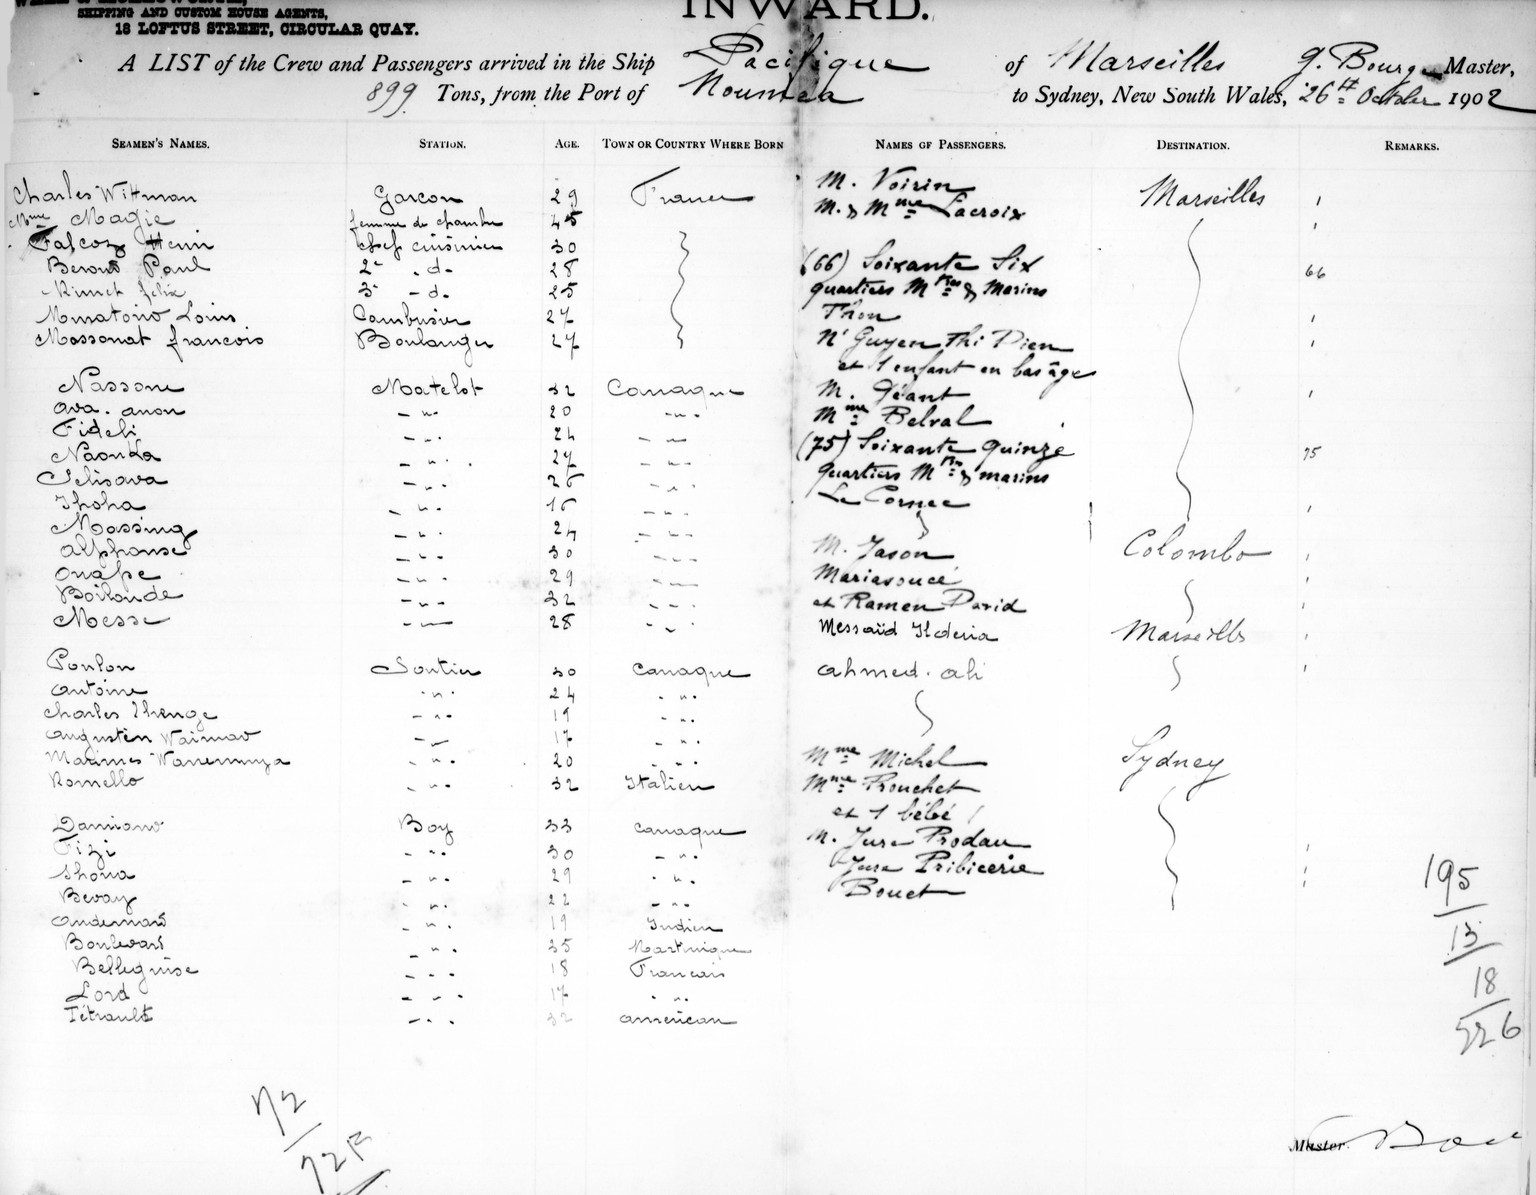 SHIPPING AND CUSTOM HOUSE AGENTS,
18 LOFTUS STREET, CIRCULAR QUAY.
INWARD.
A LIST of the Crew and Passengers arrived in the Ship Pacifique of Marseilles G. Bourge Master,
899 Tons, from the Port of Noumea to Sydney, New South Wales, 26th October 1902
SEAMEN'S NAMES. STATION. AGE. TOWN OR COUNTRY WHERE BORN NAMES OF PASSENGERS. DESTINATION. REMARKS.
Charles Wittman Garcon 29 France
Mme Magie femme de chambre 45
Falcoz Henri chef cuisinier 30
Paul 2e - d- 28
felix 3e - d- 25
Louis Cambusier 27
Massonat francois Boulanger 27
Nassone Matelot 32 Canaque
Ava. anon - " - 20 - " -
Fideli - " - 24 - " -
Naonka - " - 27 - " -
Selisava - " - 26 - " -
Thoha - " - 16 - " -
Massing - " - 24 - " -
Alphonse - " - 30 - " -
Onape - " - 29 - " -
Boilonde - " - 32 - " -
Messe - " - 28 - " -
Poulon Soutier 30 Canaque
Antoine - " - 24 - " -
Charles Thenge - " - 19 - " -
Augustin - " - 17 - " -
- " - 20 - " -
Romello - " - 32 Italien
Damiano Boy 33 canaque
Fizi - " - 30 - " -
Shona - " - 29 - " -
Bevay - " - 22 - " -
- " - 19 Indien
Boulevard - " - 35 Martinique
Belleguise - " - 18 Francais
Lord - " - 17 - " -
Tétrault - " - 32 américan
M. Voirin Marseilles 1
M. & Mme Lacroix 1
(66) Soixante Six 66
quartiers Mtres & Marins
Thou 1
N'Guyen Thi Dien 1
et 1 enfant en bas âge
M. Géant 1
Mme Belval
(75) Soixante Quinze 75
quartiers Mtres & marins
Le Cornec 1
M. Jason Colombo 1
Mariasoucé 1
et Ramen David 1
Messaüd Marseilles 1
ahmed. ali 1
Mme Michel Sydney
Mme Prouchet
et 1 bébé
M. Jure Prodan 1
Jure Pribicerie 1
Bouet
195
13
18
226
72
Master.